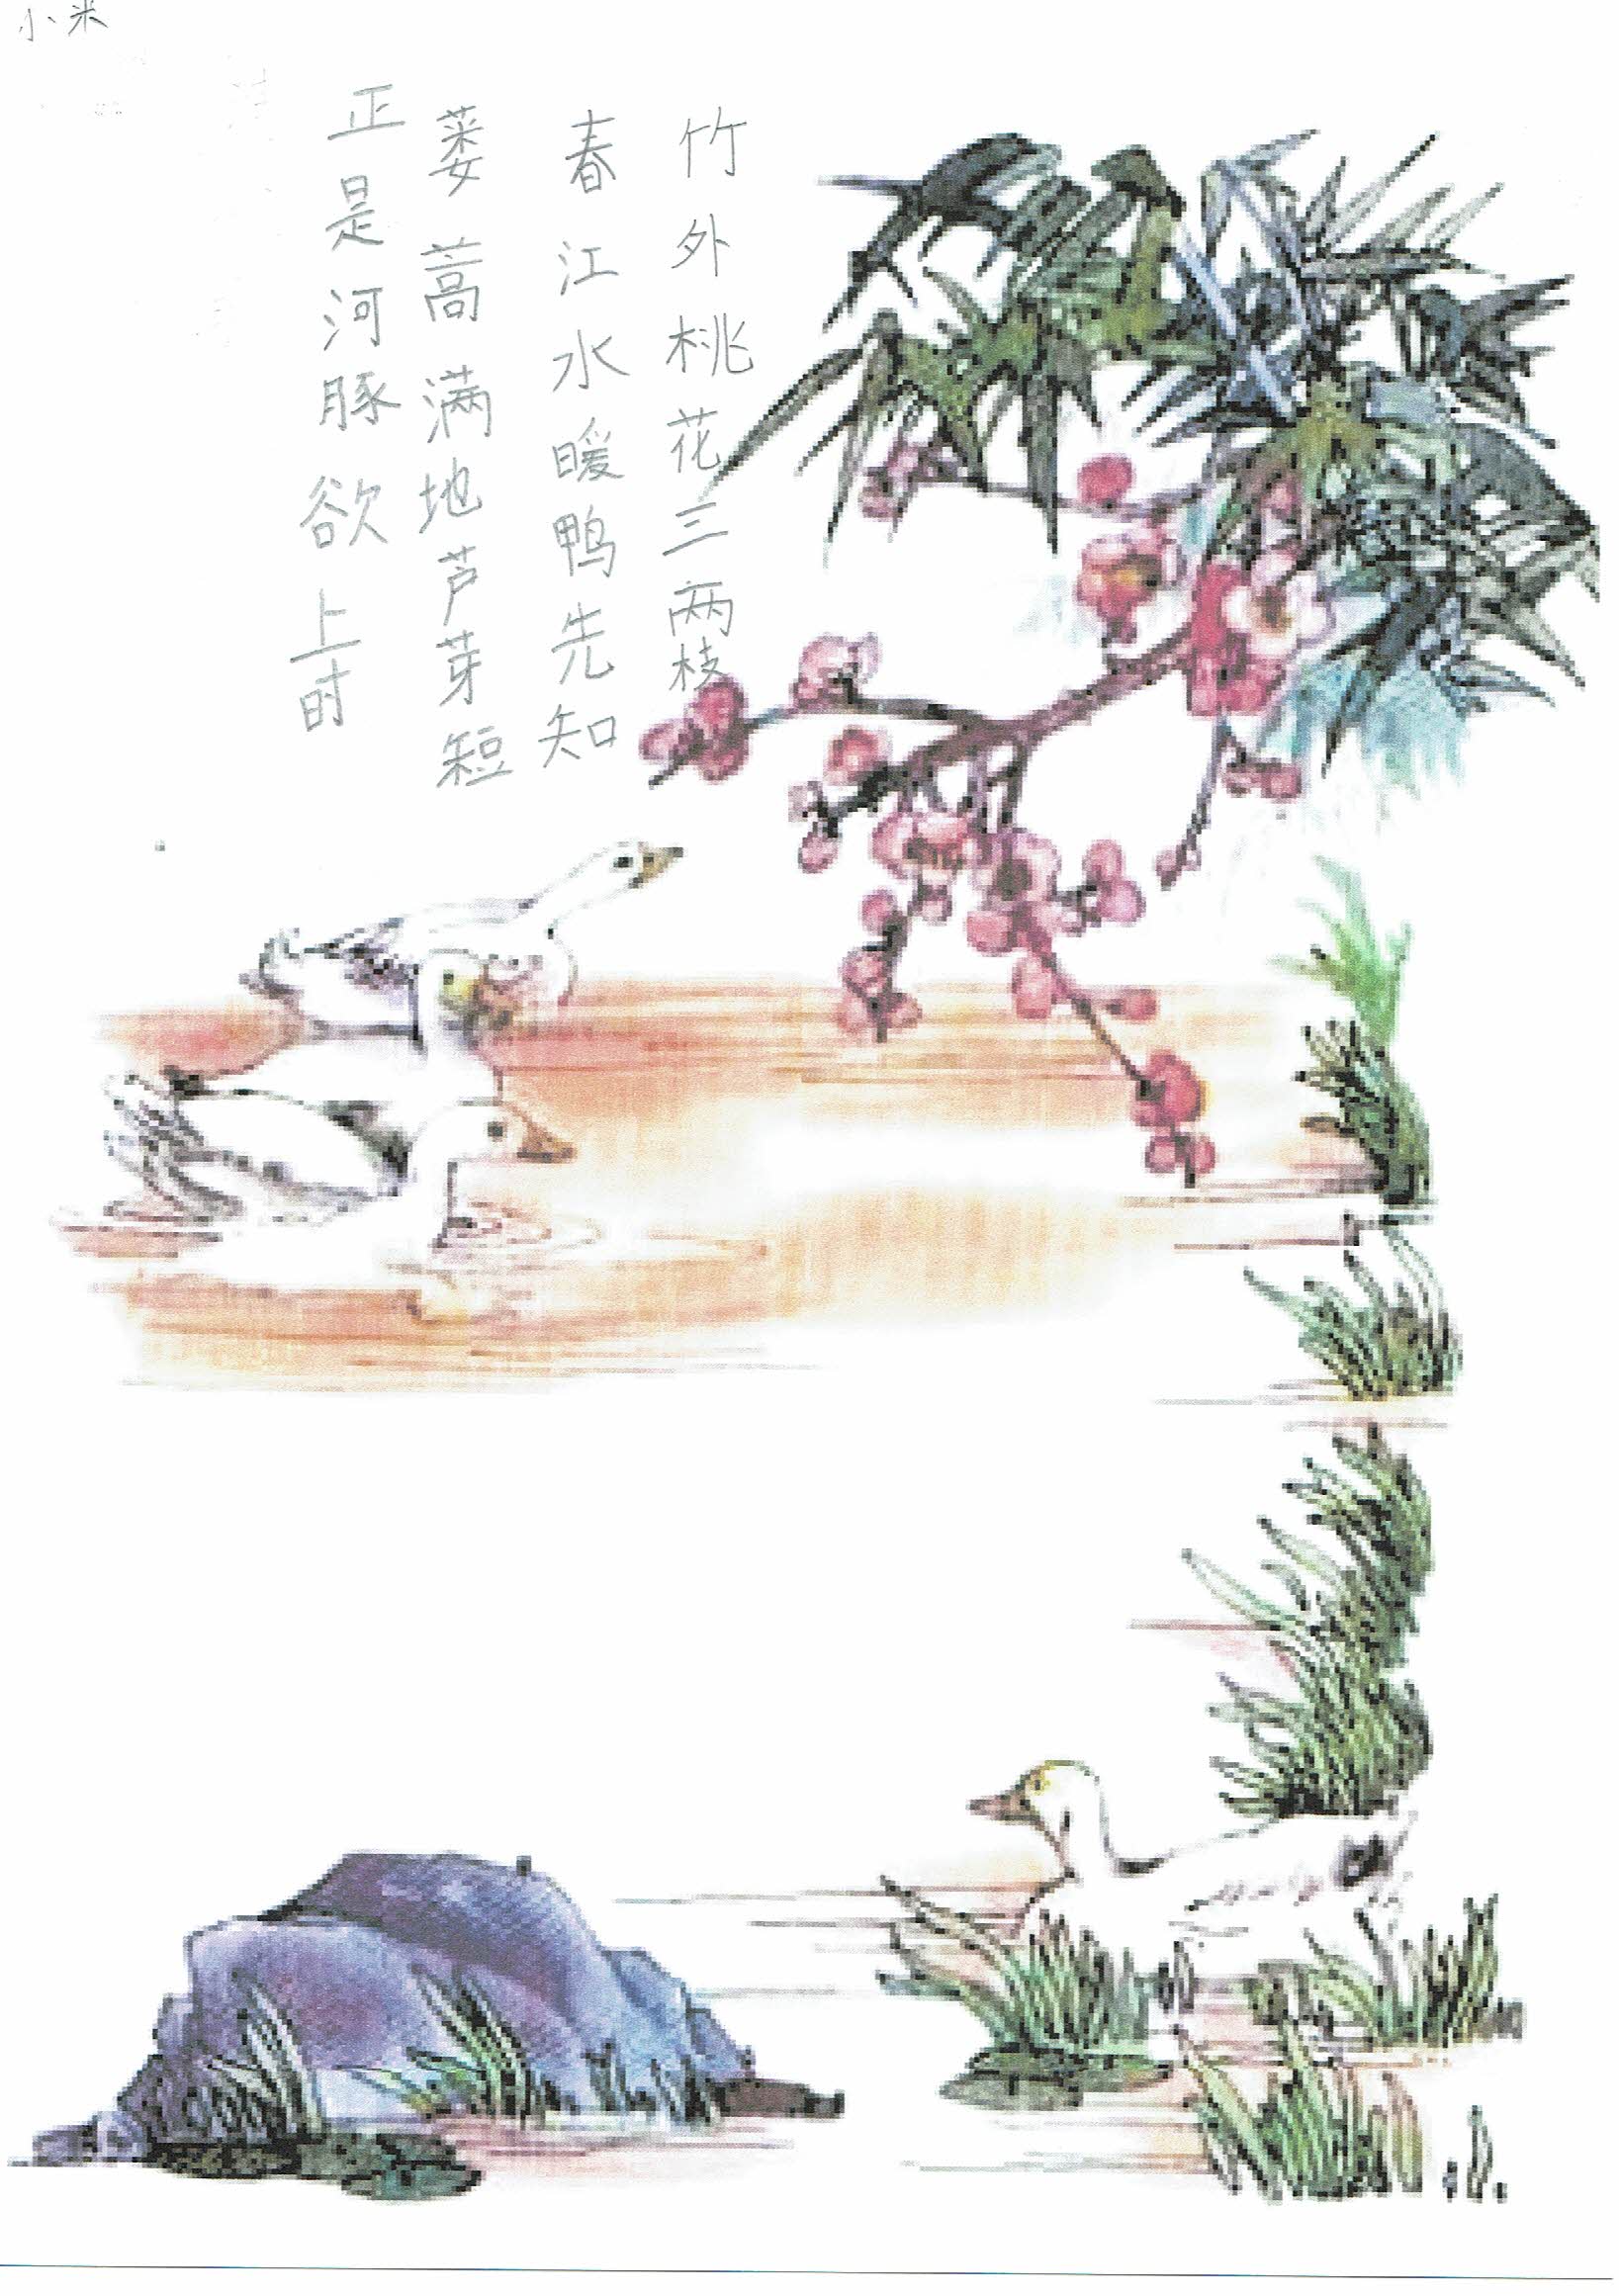 小米
竹外桃花三两枝
春江水暖鸭先知
蒌蒿满地芦芽短
正是河豚欲上时